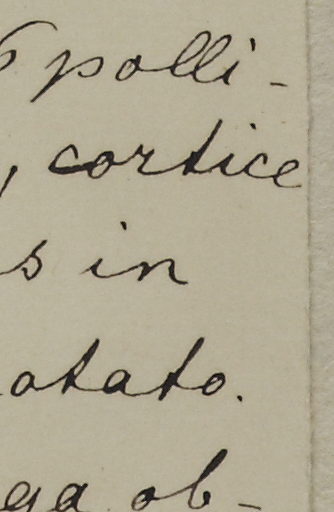 polli-
, cortice
s in
otato.
ga ob-